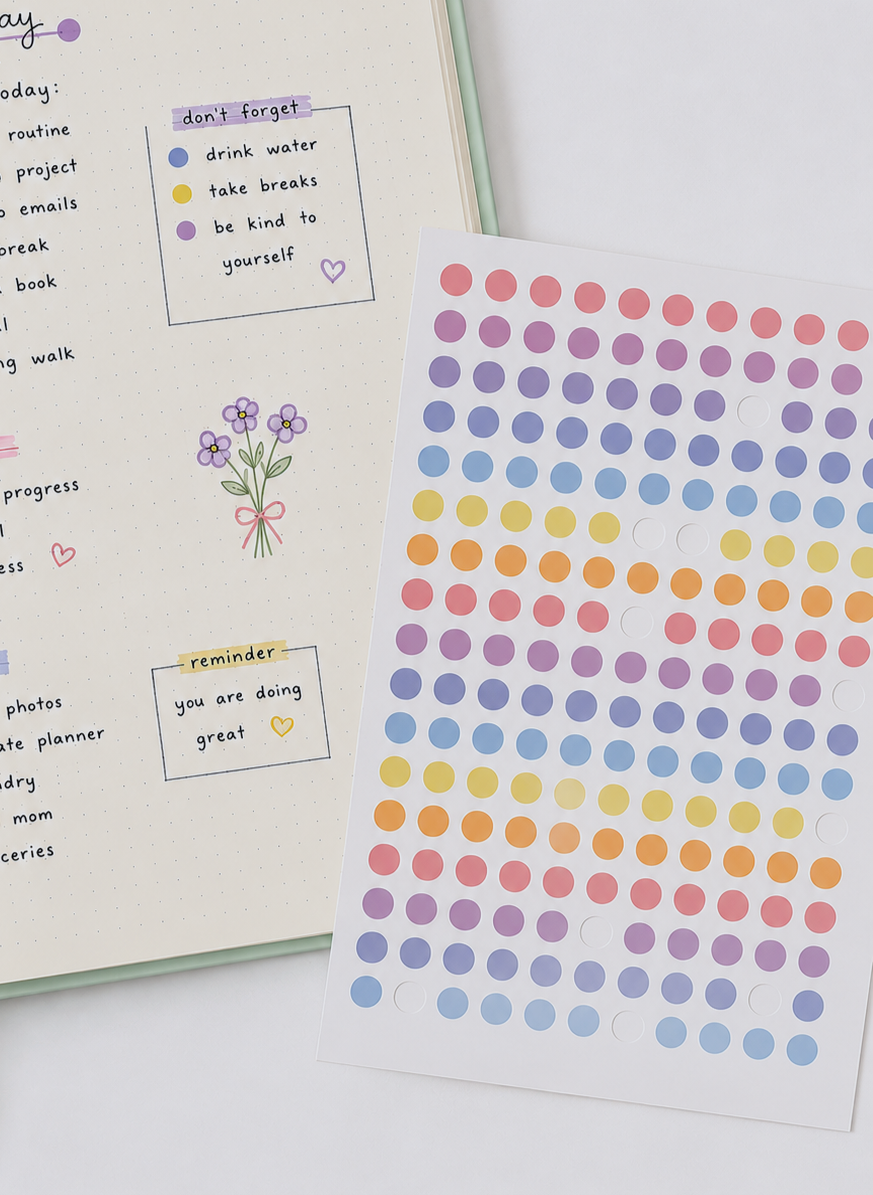 ay
oday:
routine
project
emails
break
book
l
ng walk
progress
l
ess
photos
ate planner
dry
mom
ceries
don't forget
drink water
take breaks
be kind to
yourself
reminder
you are doing
great